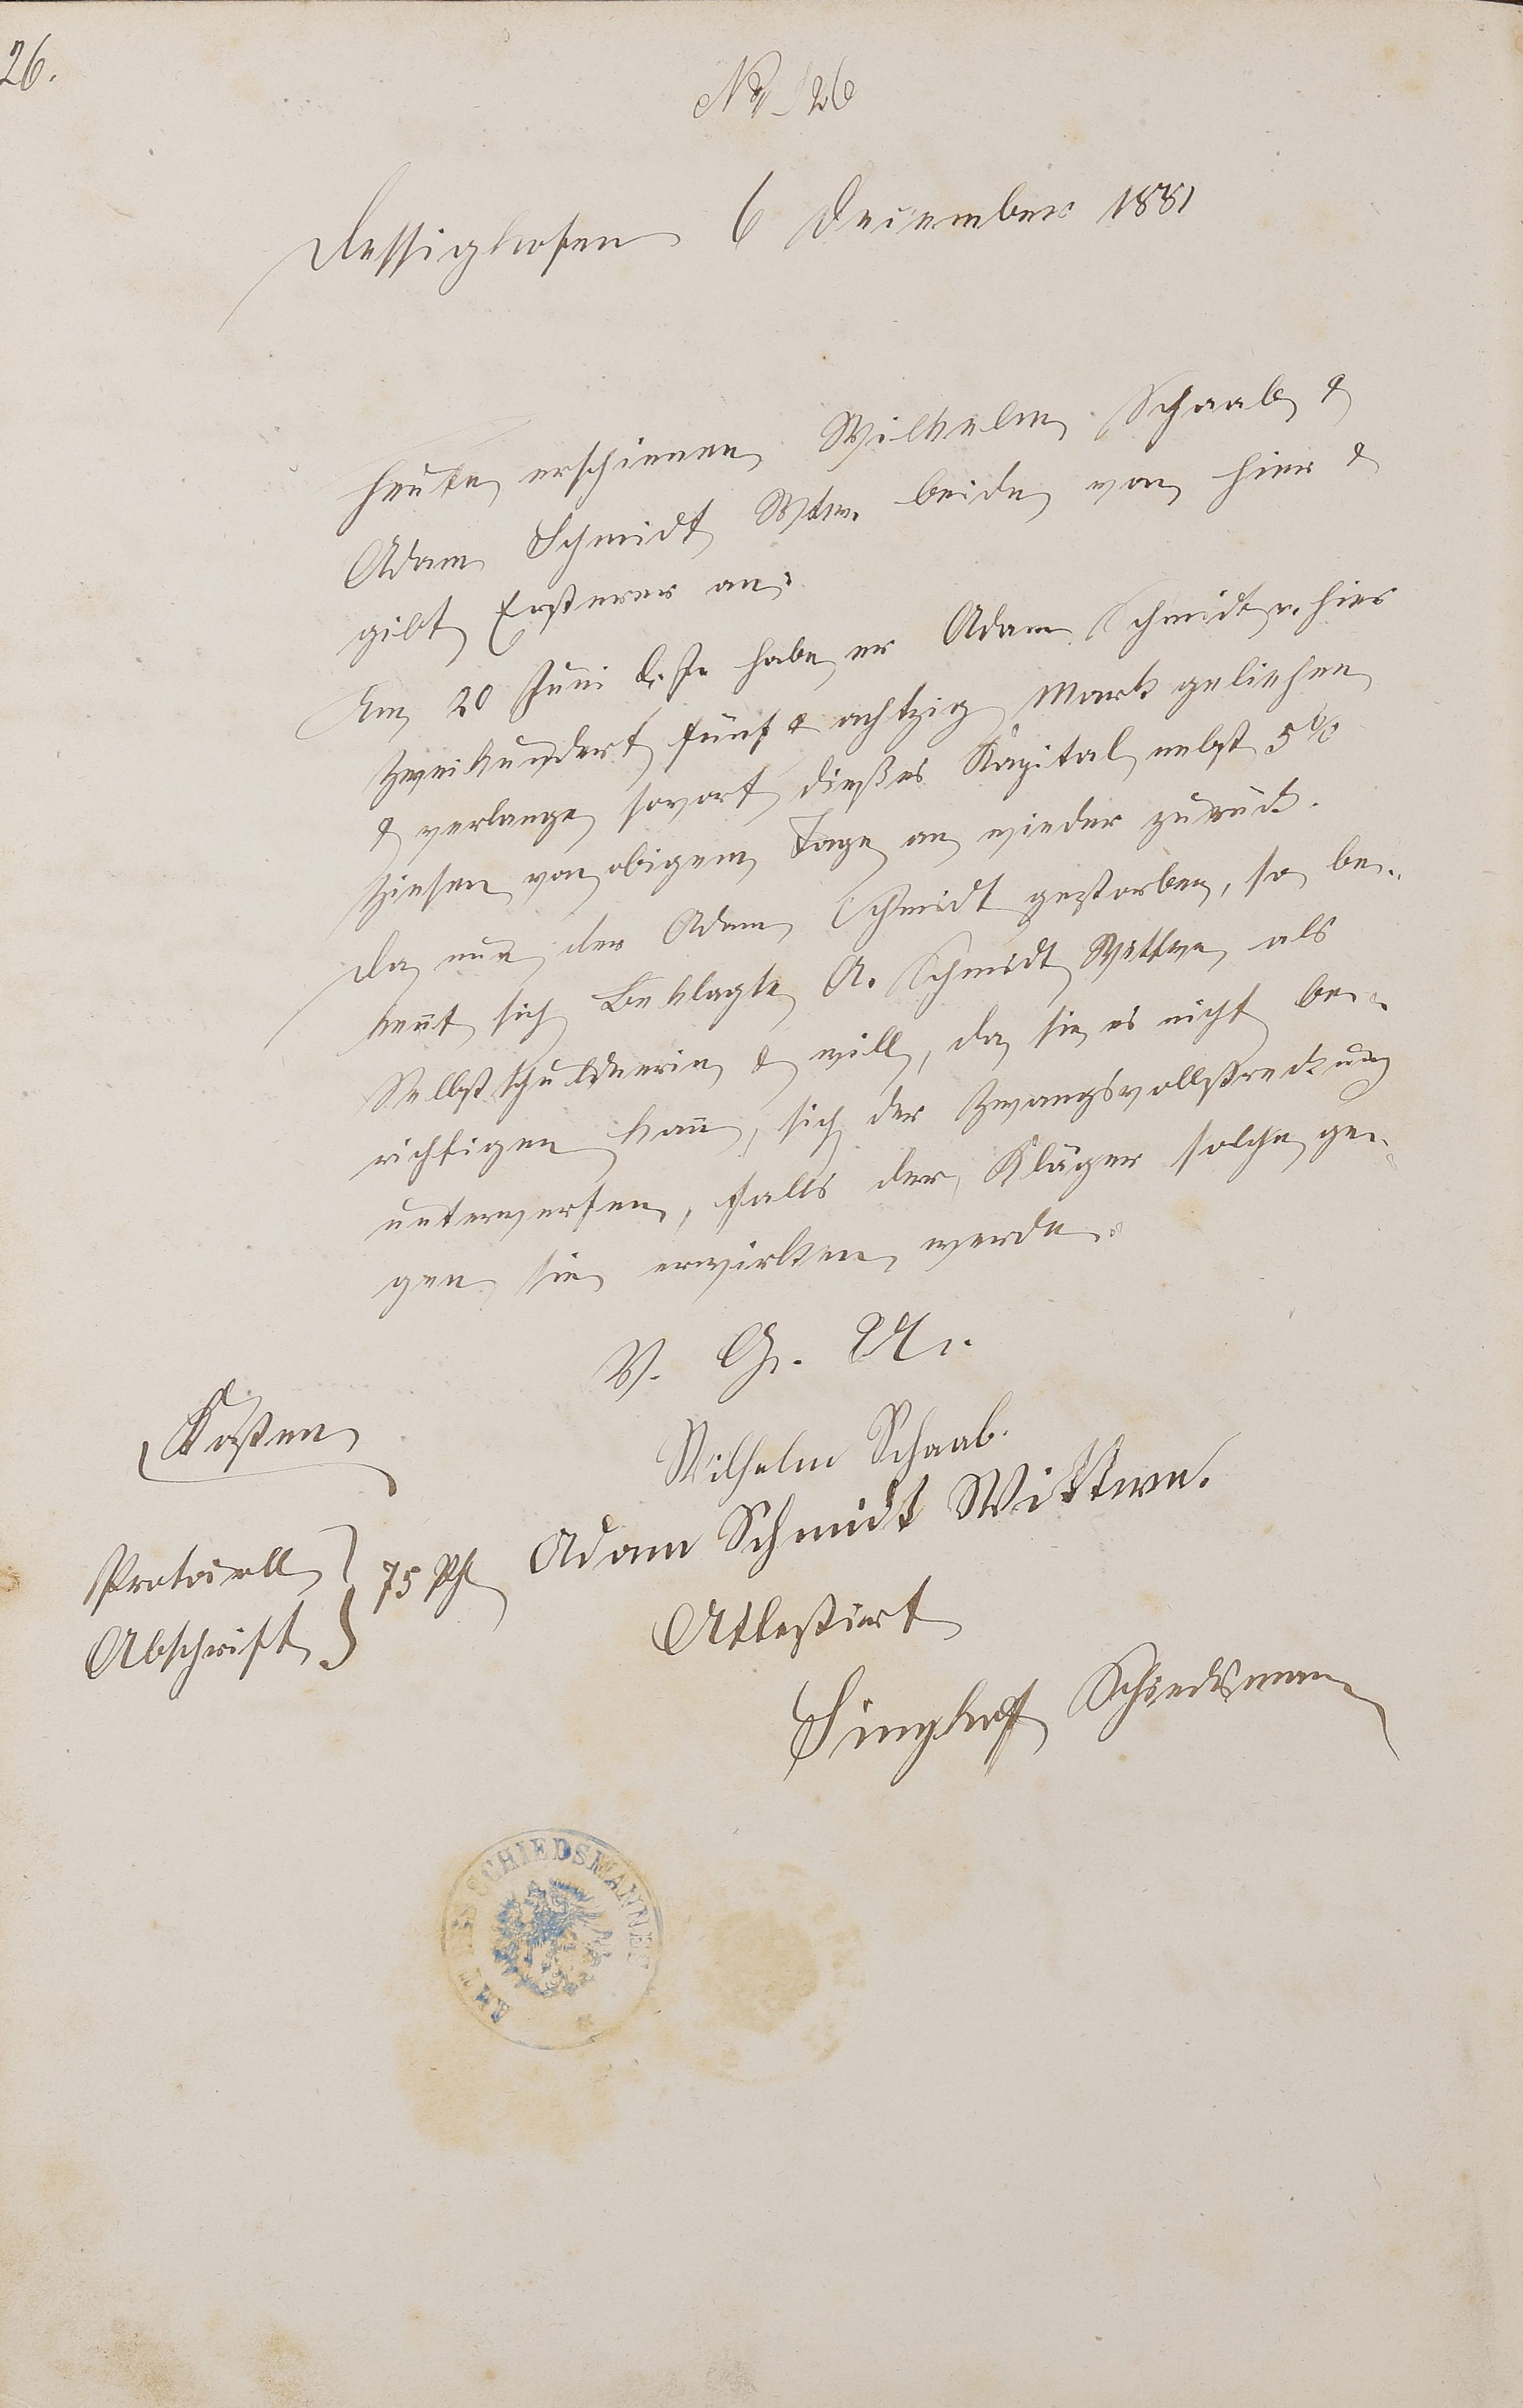 26.
No 26
Dessighofen 6 December 1881
Heute erschienen Wilhelm Schaab &
Adam Schmidt Wtw. beide von hier &
gibt Ersterer an:
Am 20 Juni l. Js. habe er Adam Schmidt v. hier
zweihundert fünf & achtzig Mark geliehen
& verlange sovort dießes Kapital nebst 5%
Zinsen von obigem Tage an wieder zurück.
Da nun der Adam Schmidt gestorben, so be-
kennt sich Beklagte A. Schmidt Wittwe als
Selbstschuldnerin & will, da sie es nicht be-
richtigen kann, sich der Zwangsvollstreckung
unterwerfen, falls der Kläger solche ge-
gen sie erwirken werde.
V. G. U.
Wilhelm Schaab.
Adam Schmidt Wittwe.
Kosten
Protocoll
Abschrift
75 Pf
Attestiert
Singhof Schiedsmann
AMT DES SCHIEDSMANNES